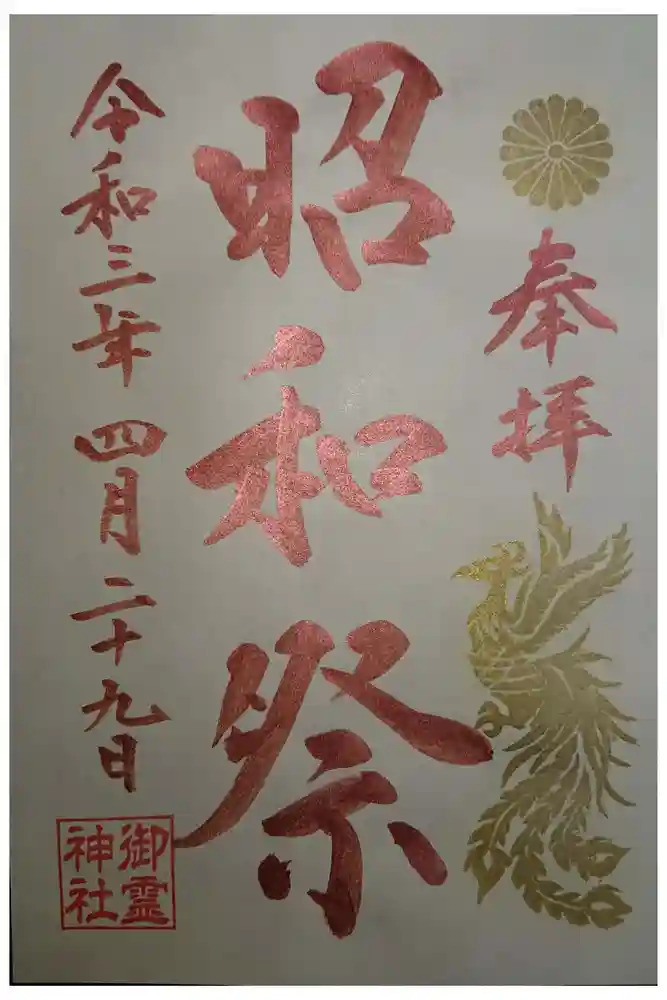 奉拝
昭和祭
令和三年 四月二十九日
御霊
神社